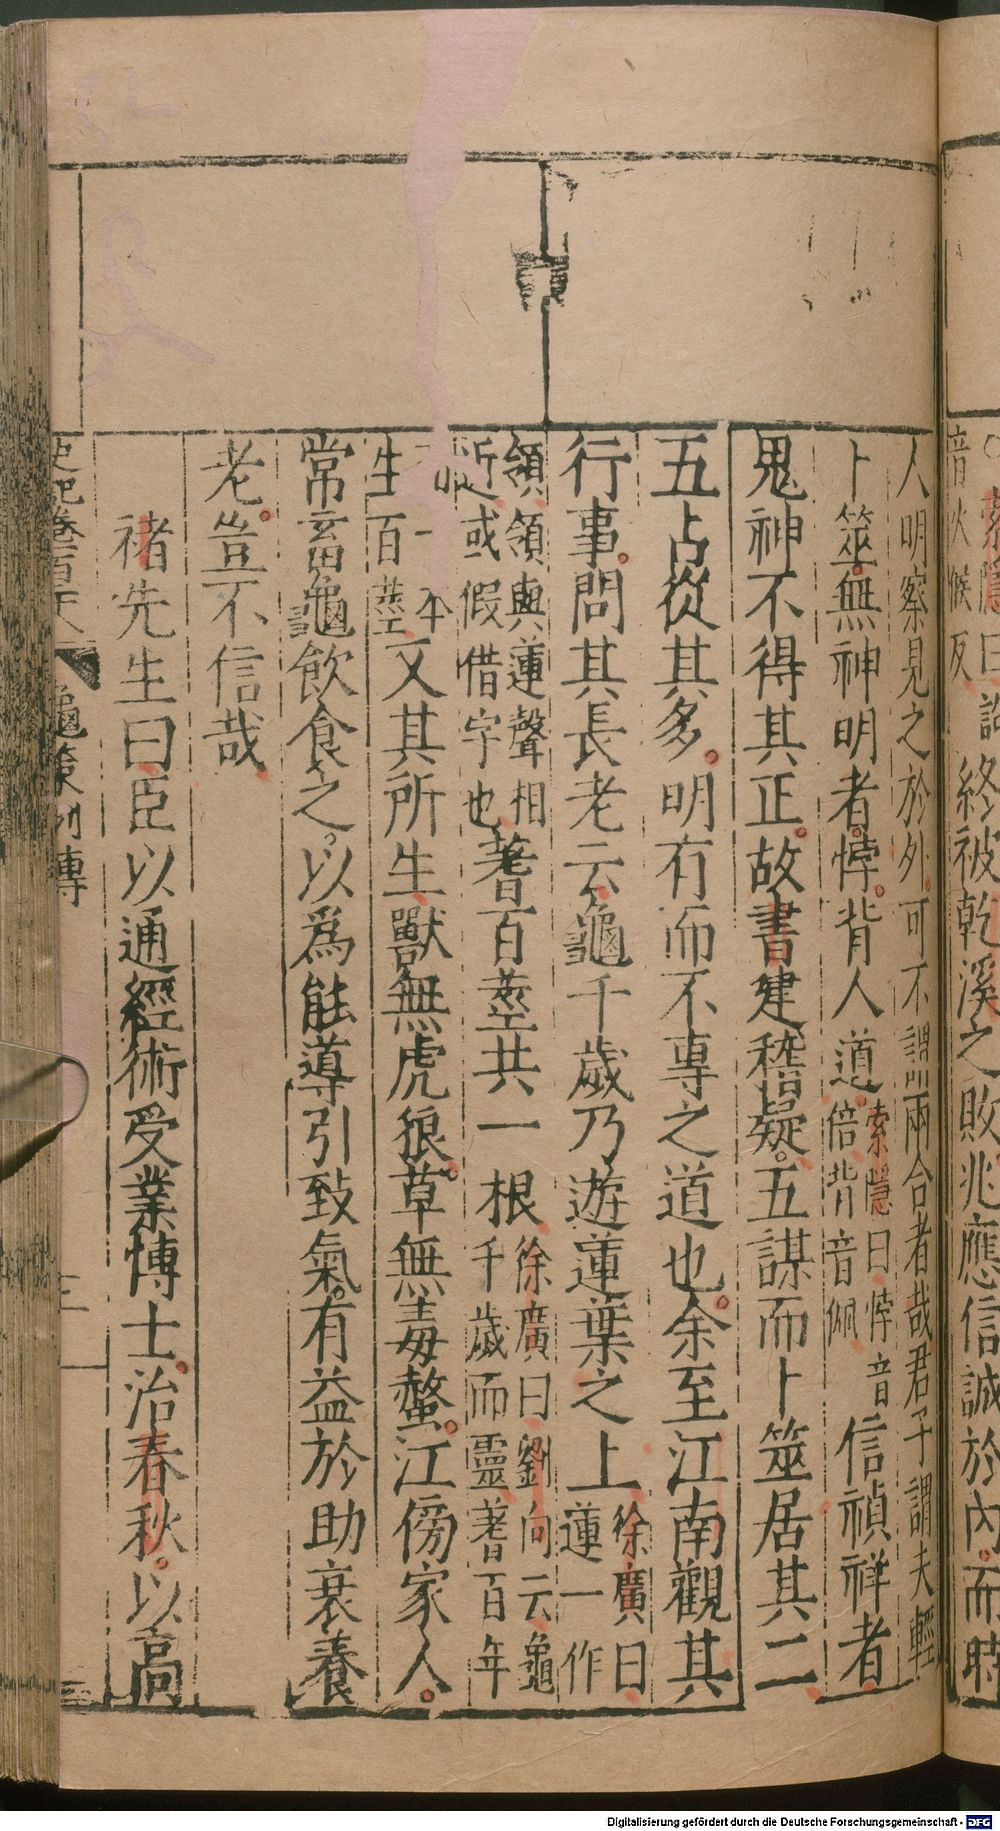 索隱曰
音火候反
終被乾溪之敗兆應信誠於內而時
人明察見之於外可不謂兩合者哉君子謂夫輕
卜筮無神明者悖背人道
索隱曰悖音
倍背音佩
信禎祥者
鬼神不得其正故書建稽疑五謀而卜筮居其二
五占從其多明有而不專之道也余至江南觀其
行事問其長老云龜千歲乃遊蓮葉之上
徐廣曰
蓮一作
領領與蓮聲相
近或假借字也
蓍百莖共一根
徐廣曰劉向云龜
千歲而靈蓍百年
一本
生百莖
又其所生獸無虎狼草無毒螫江傍家人
常畜龜飲食之以爲能導引致氣有益於助衰養
老豈不信哉
褚先生曰臣以通經術受業博士治春秋以高
史記卷百二十八
龜策列傳
三
Digitalisierung gefördert durch die Deutsche Forschungsgemeinschaft - DFG